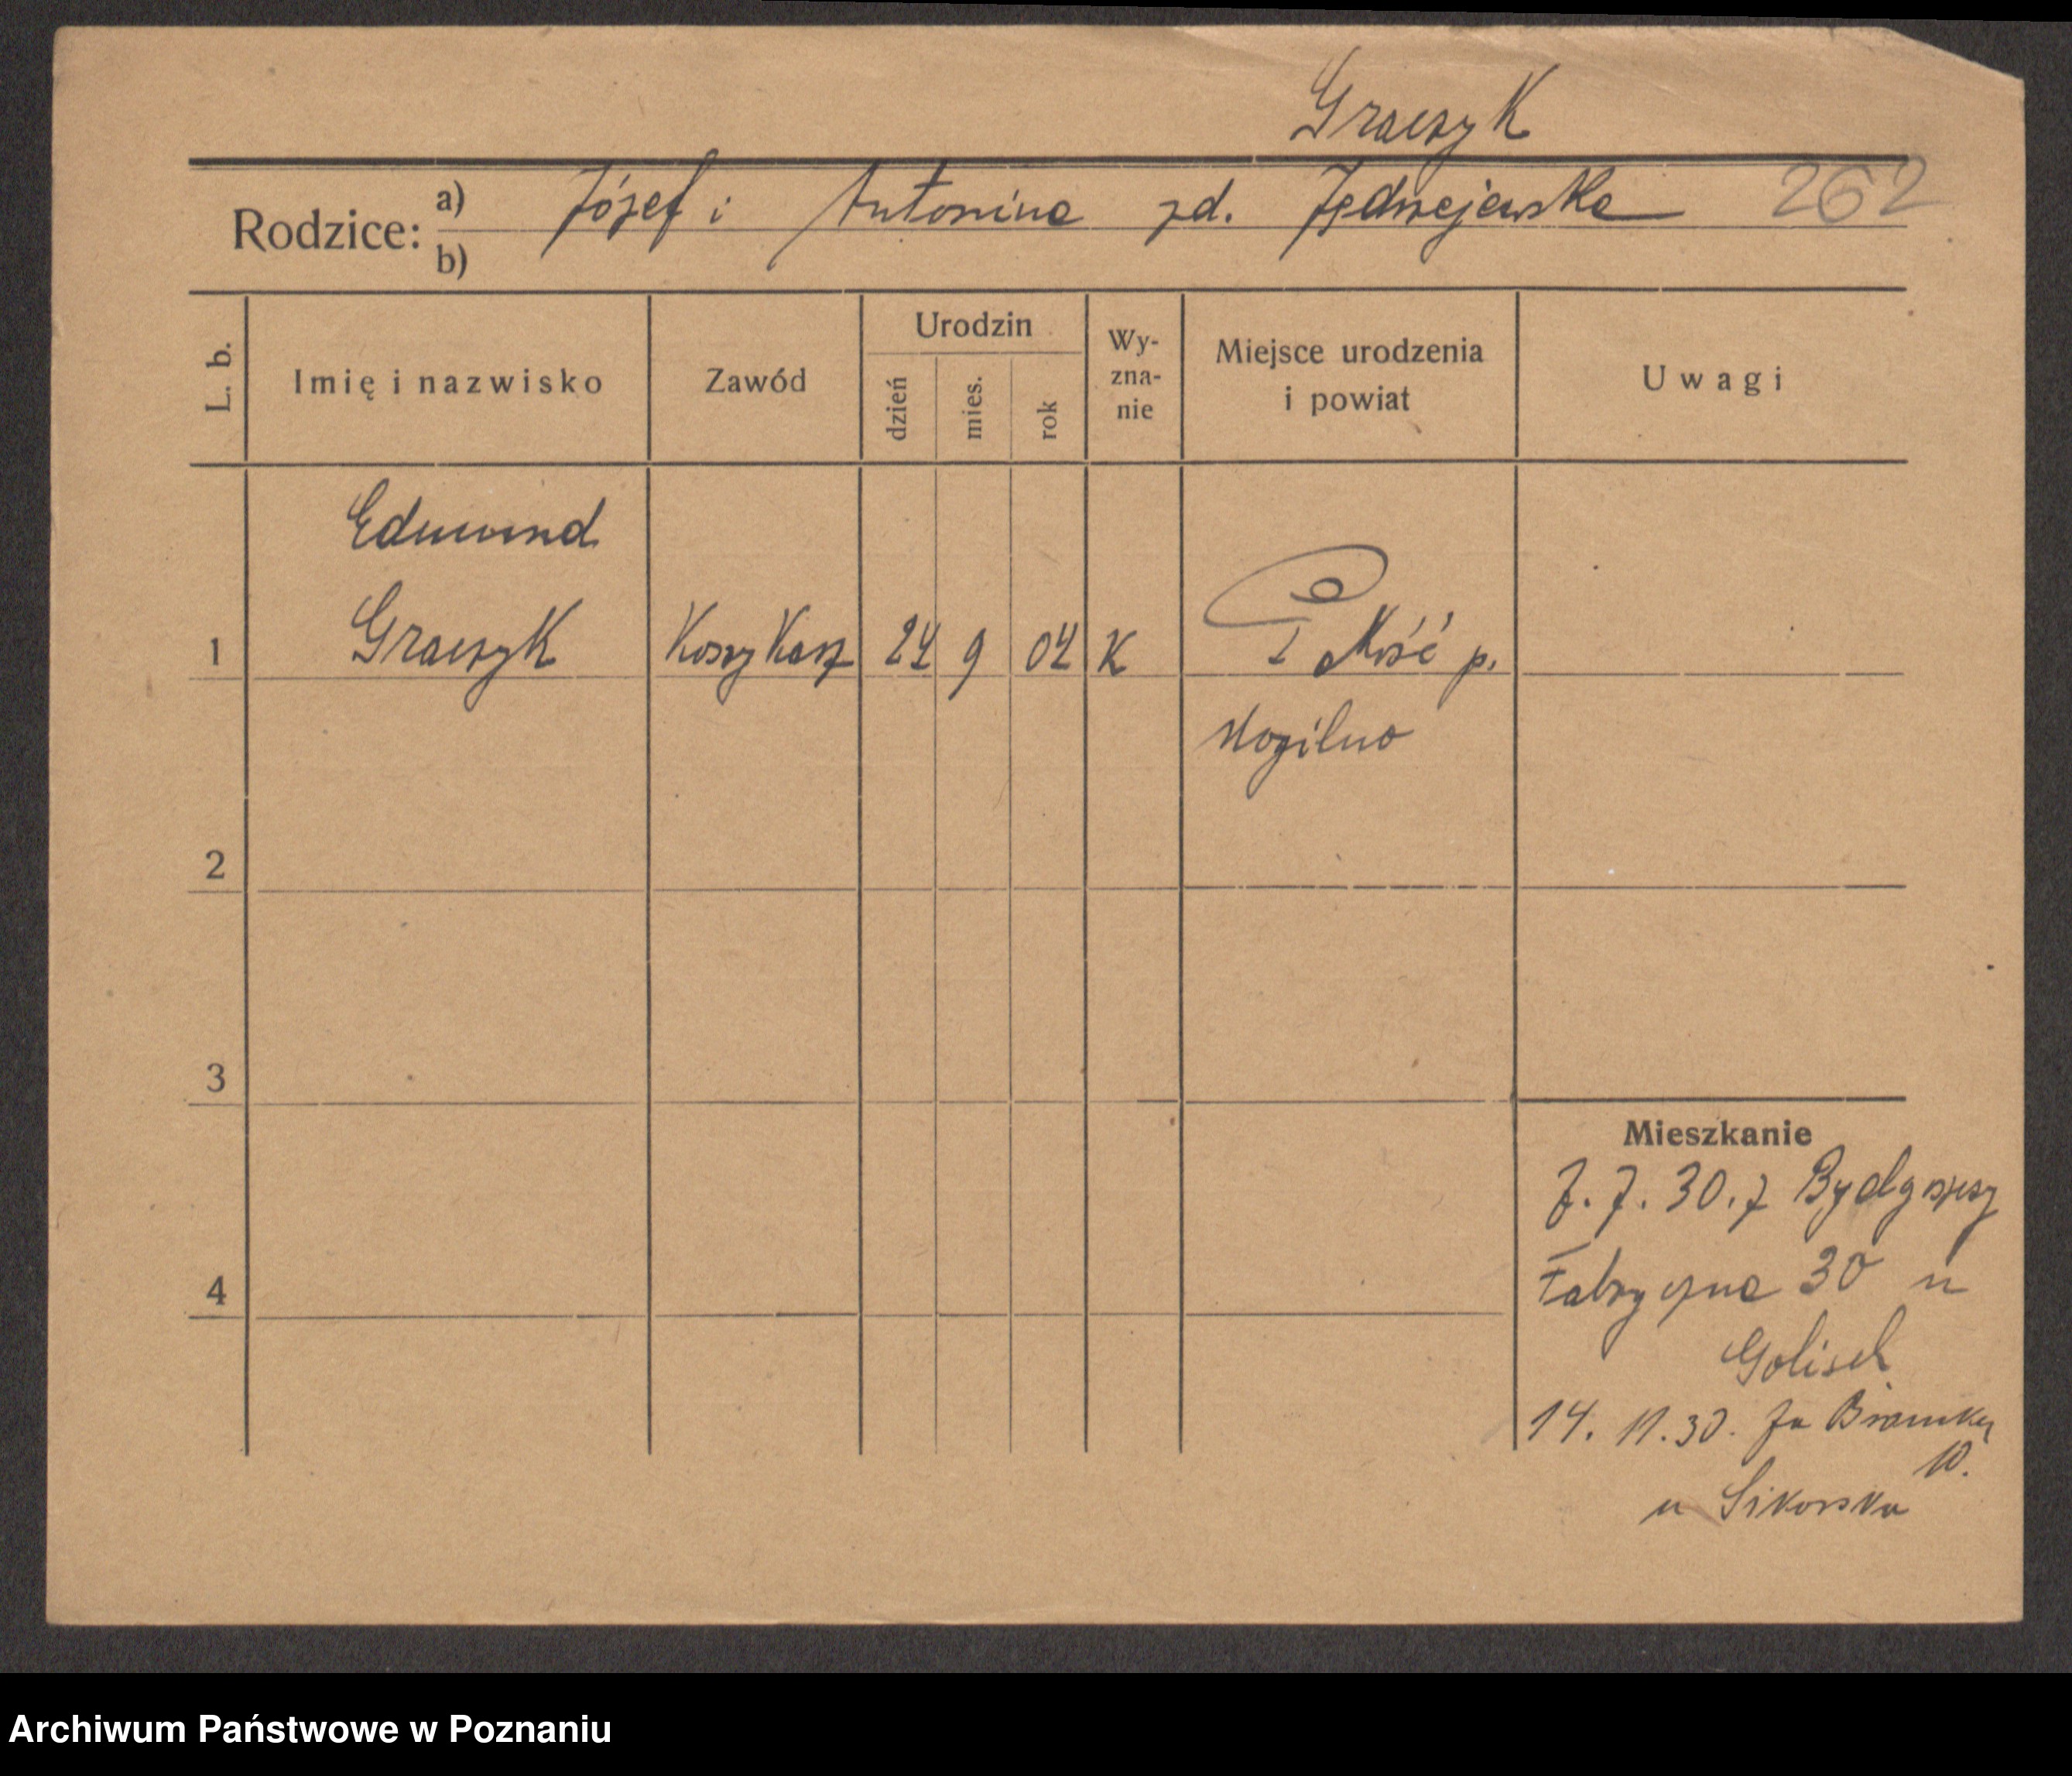 Graczyk
Rodzice: a) Józef i Antonina zd. Jędrzejewska 262
b)
L. b.
Imię i nazwisko
Zawód
Urodzin
dzień
mies.
rok
Wy-
zna-
nie
Miejsce urodzenia
i powiat
Uwagi
Edmund
1 Graczyk Koszykarz 24 9 04 K Pakość p.
Mogilno
2
3
4
Mieszkanie
7.7.30. z Bydgoszczy
Fabryczna 30 u
Golisch
14. 11. 30. Za Bramką
10.
u Sikorska
Archiwum Państwowe w Poznaniu